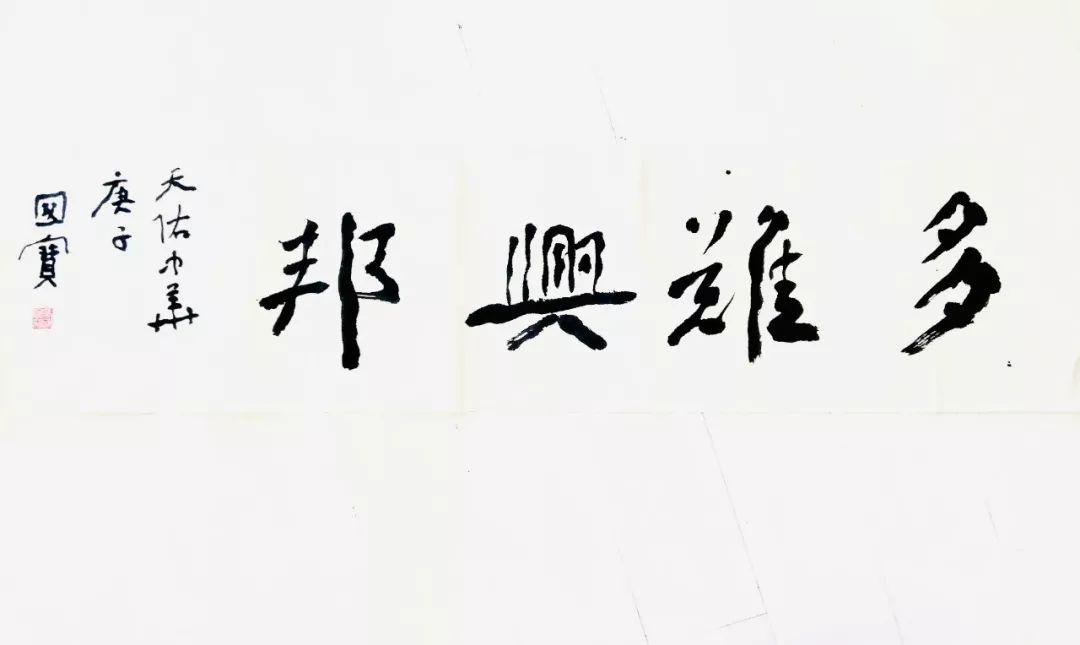 多難興邦
天佑中華
庚子
國寶